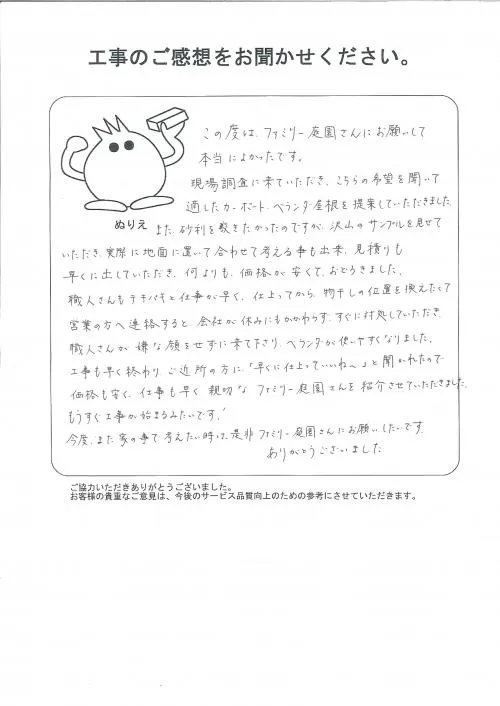 工事のご感想をお聞かせください。
この度は、ファミリー庭園さんにお願いして
本当によかったです。
現場調査に来ていただき、こちらの希望を聞いて
適したカーポート、ベランダ屋根を提案していただきました。
ぬりえ
また、砂利を敷きたかったのですが、沢山のサンプルを見せて
いただき、実際に地面に置いて合わせて考える事も出来、見積りも
早くに出していただき、何よりも、価格が安くて、おどろきました。
職人さんもテキパキと仕事が早く、仕上ってから、物干しの位置を換えたくて
営業の方へ連絡すると、会社が休みにもかかわらず、すぐに対処していただき、
職人さんが嫌な顔をせずに来て下さり、ベランダが使いやすくなりました。
工事も早く終わり、ご近所の方に「早くに仕上っていいね〜」と聞かれたので
価格も安く、仕事も早く、親切なファミリー庭園さんを紹介させていただきました。
もうすぐ工事が始まるみたいです!
今度、また家の事で考えたい時は、是非ファミリー庭園さんにお願いしたいです。
ありがとうございました
ご協力いただきありがとうございました。
お客様の貴重なご意見は、今後のサービス品質向上のための参考にさせていただきます。